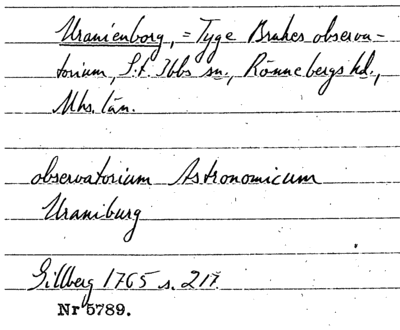 Uranienborg, = Tyge Brahes observa-
torium, S:t Ibbs sn., Rönnebergs hd.,
Mhs. län.
observatorium Astronomicum
Uraniburg
Gillberg 1765 s. 217.
Nr 5789.